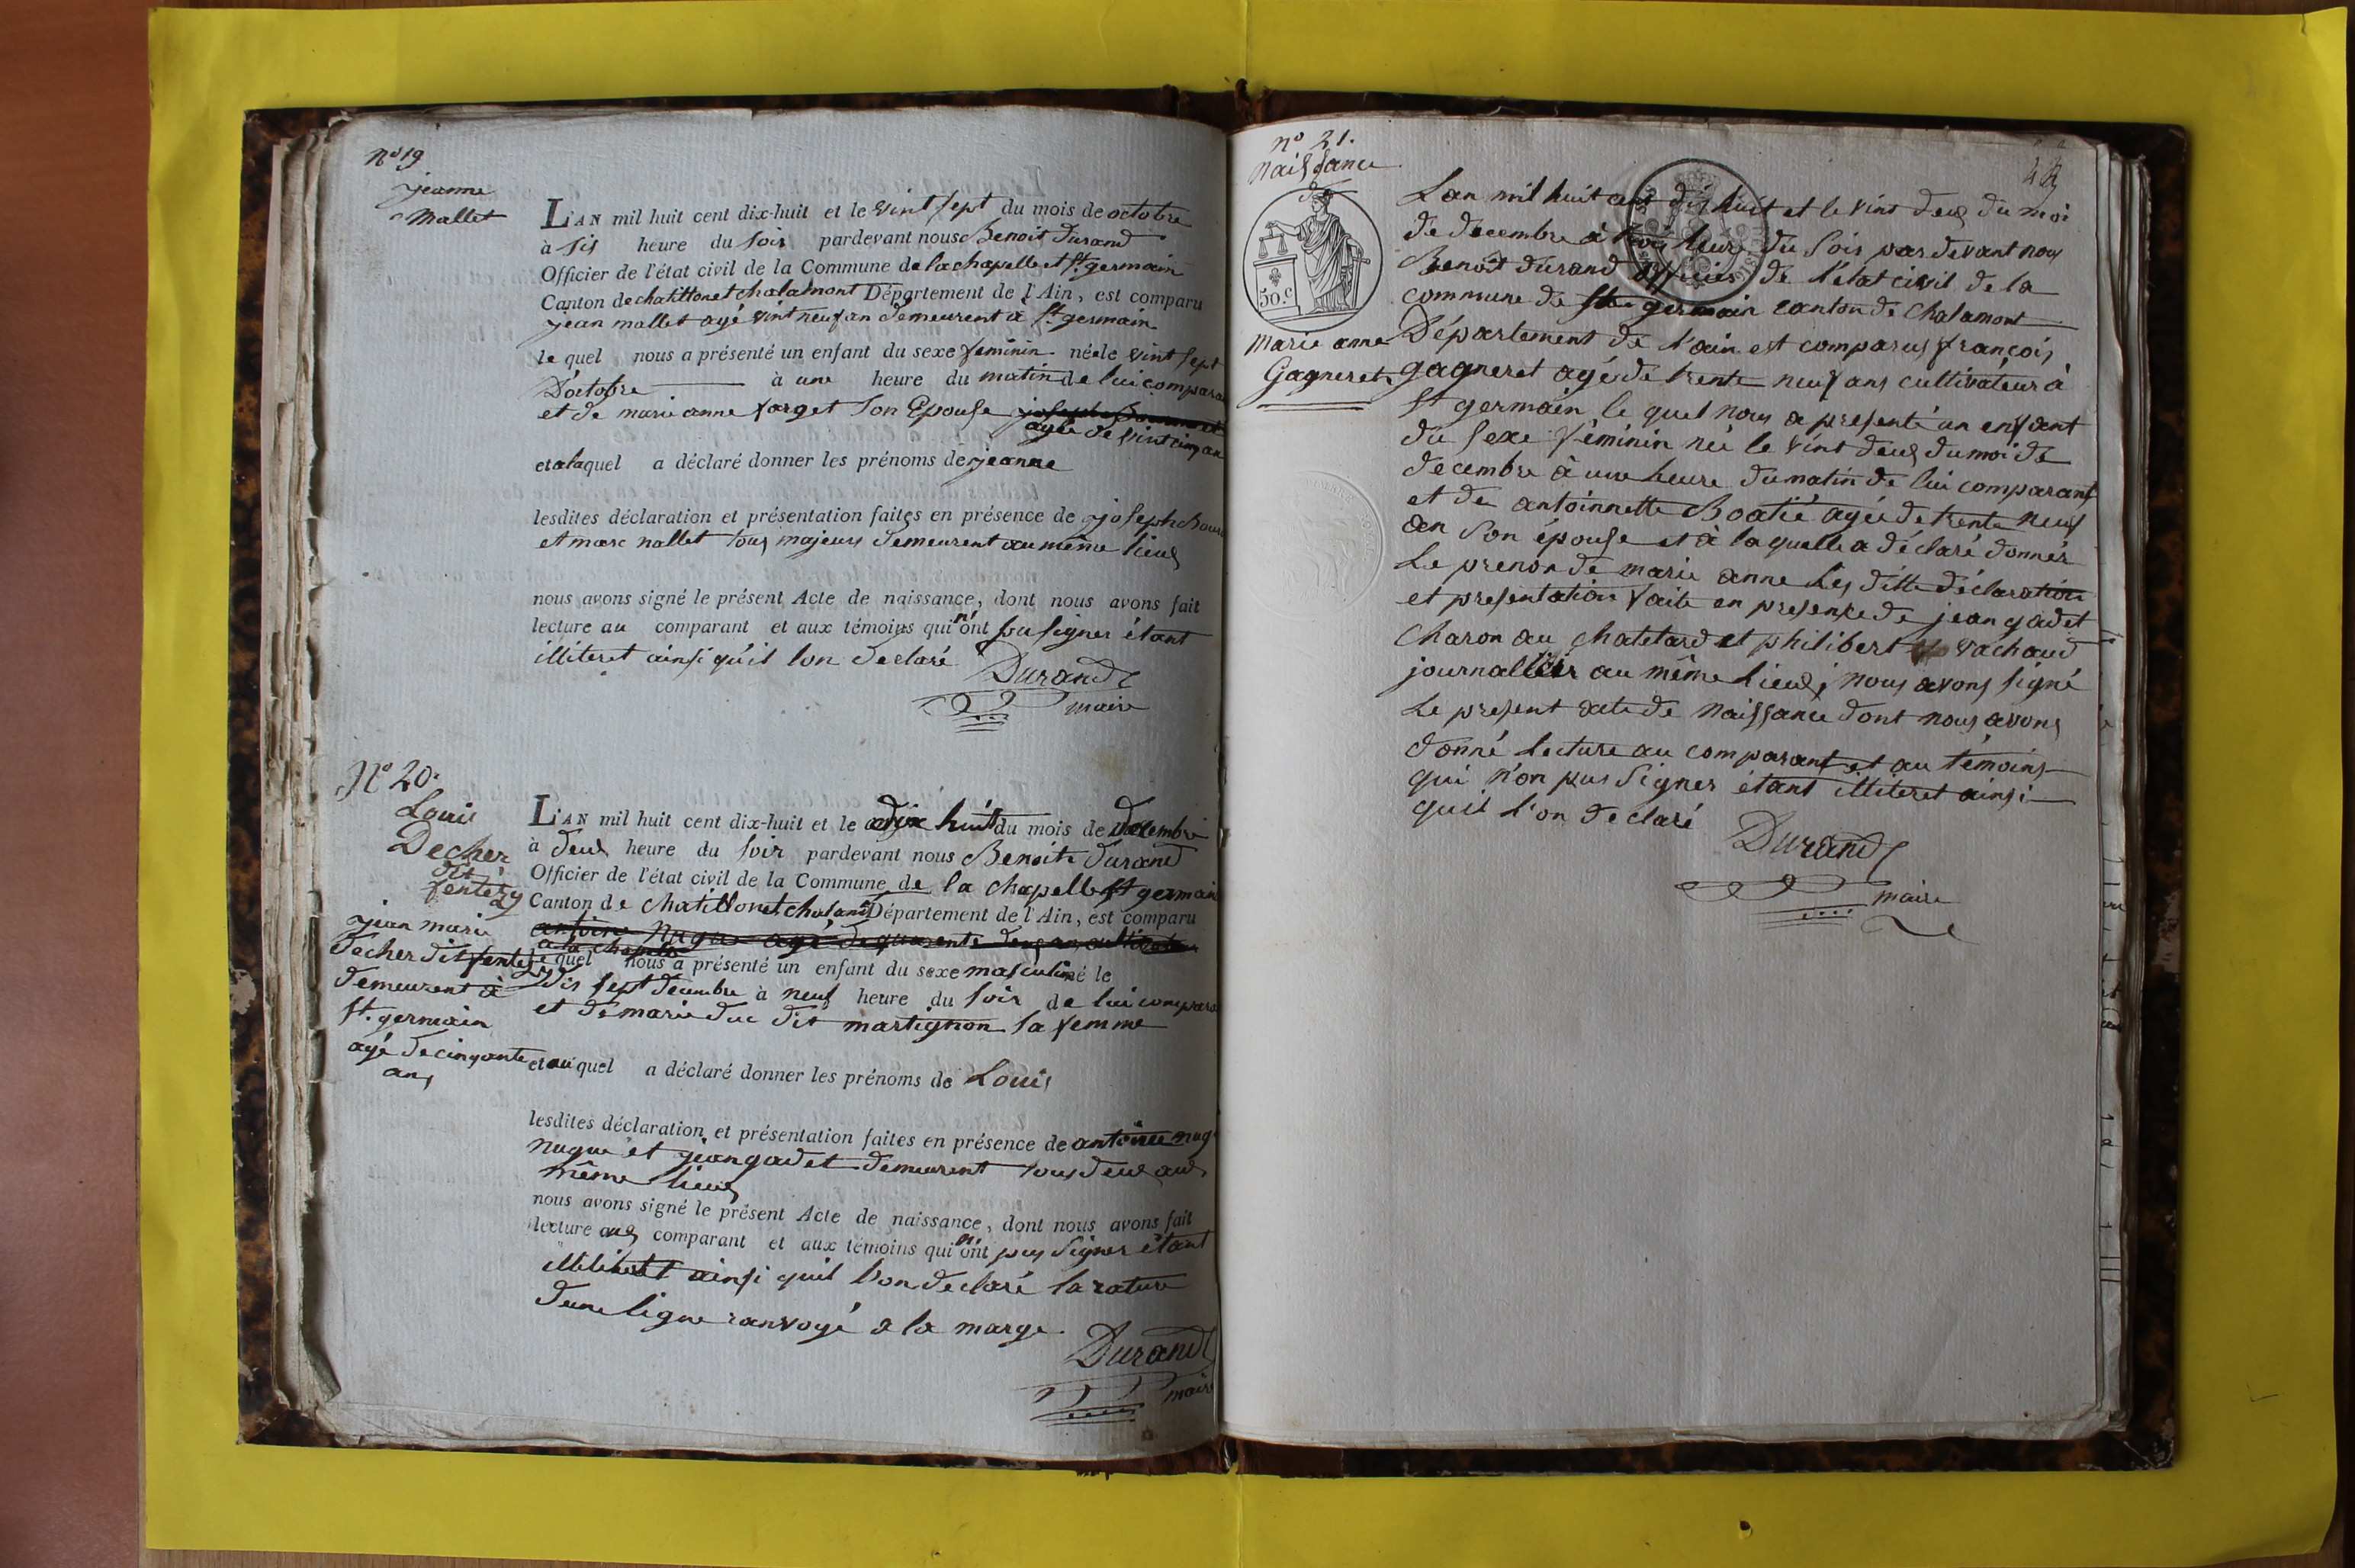 nº 19
jeanne
Mallet
L'AN mil huit cent dix-huit et le vint sept du mois de octobre
à sis heure du soir pardevant nous Benoit Durand
Officier de l'état civil de la Commune de lachapelle et st. germain
Canton de chatillon et chalamont Département de l'Ain, est comparu
jean mallet agé vint neuf an demeurent à st. germain
le quel nous a présenté un enfant du sexe feminin née le vint sept
D'octobre à une heure du matin de lui compara
et de marie anne farget son Epouse joseph
agée de vint cinq an
et a laquel a déclaré donner les prénoms de jeanne
lesdites déclaration et présentation faites en présence de joseph
et marc mallet tous majeurs demeurent au même lieux
nous avons signé le présent Acte de naissance, dont nous avons fait
lecture au comparant et aux témoins qui n'ont su signer étant
illiteret ainsi qu'il l'on declaré
Durand
maire
Nº 20.
Louis
Decher
dit
fentezy
L'AN mil huit cent dix-huit et le dix huit du mois de decembre
à deux heure du soir pardevant nous Benoit durand
Officier de l'état civil de la Commune de la chapelle st germain
Canton de chatillon et chalam Département de l'Ain, est comparu
antoine nugue agé de quarente deux an cultivateur
a la chapelle
jean marie
decher dit fentezy
demeurent à
st. germain
agé de cinquante
ans
le quel nous a présenté un enfant du sexe masculin né le
dis sept decembre à neuf heure du soir de lui compara
et de marie duc dit martignon sa femme
et au quel a déclaré donner les prénoms de Louis
lesdites déclaration et présentation faites en présence de antoine nug
nugue et jean gadet demeurent tous deux aux
même lieux
nous avons signé le présent Acte de naissance, dont nous avons fait
lecture aux comparant et aux témoins qui n'ont pus signer étant
illiteret ainsi quil l'on declaré la rature
dune ligne ranvoyé a la marge
Durand
maire
nº 21.
naissance
de
50.c
Marie anne
Gagneret
Lan mil huit cent dix huit et le vint deux du moi
de decembre à trois heure du soir par devant nous
Benoit durand officier de l'état civil de la
commune de st germain canton de chalamont
Département de l'ain est comparus françois
gagneret agé de trente neuf ans cultivateur à
st germain le quel nous a presenté un enfant
du sexe féminin née le vint deux du moi de
decembre à une heure du matin de lui comparant
et de antoinnette Boatié agée de trente neuf
an son épouse et à laquelle a déclaré donner
Le prenon de marie anne Les ditte déclaration
et presentation faite en presence de jean gadet
charon au chatelard et philibert vachaud
journallier au même Lieux, nous avons signé
Le present acte de naissance dont nous avons
donné Lecture au comparant et au témoins
qui n'on pus signer étant illiteret ainsi
quil l'on declaré
Durand
maire